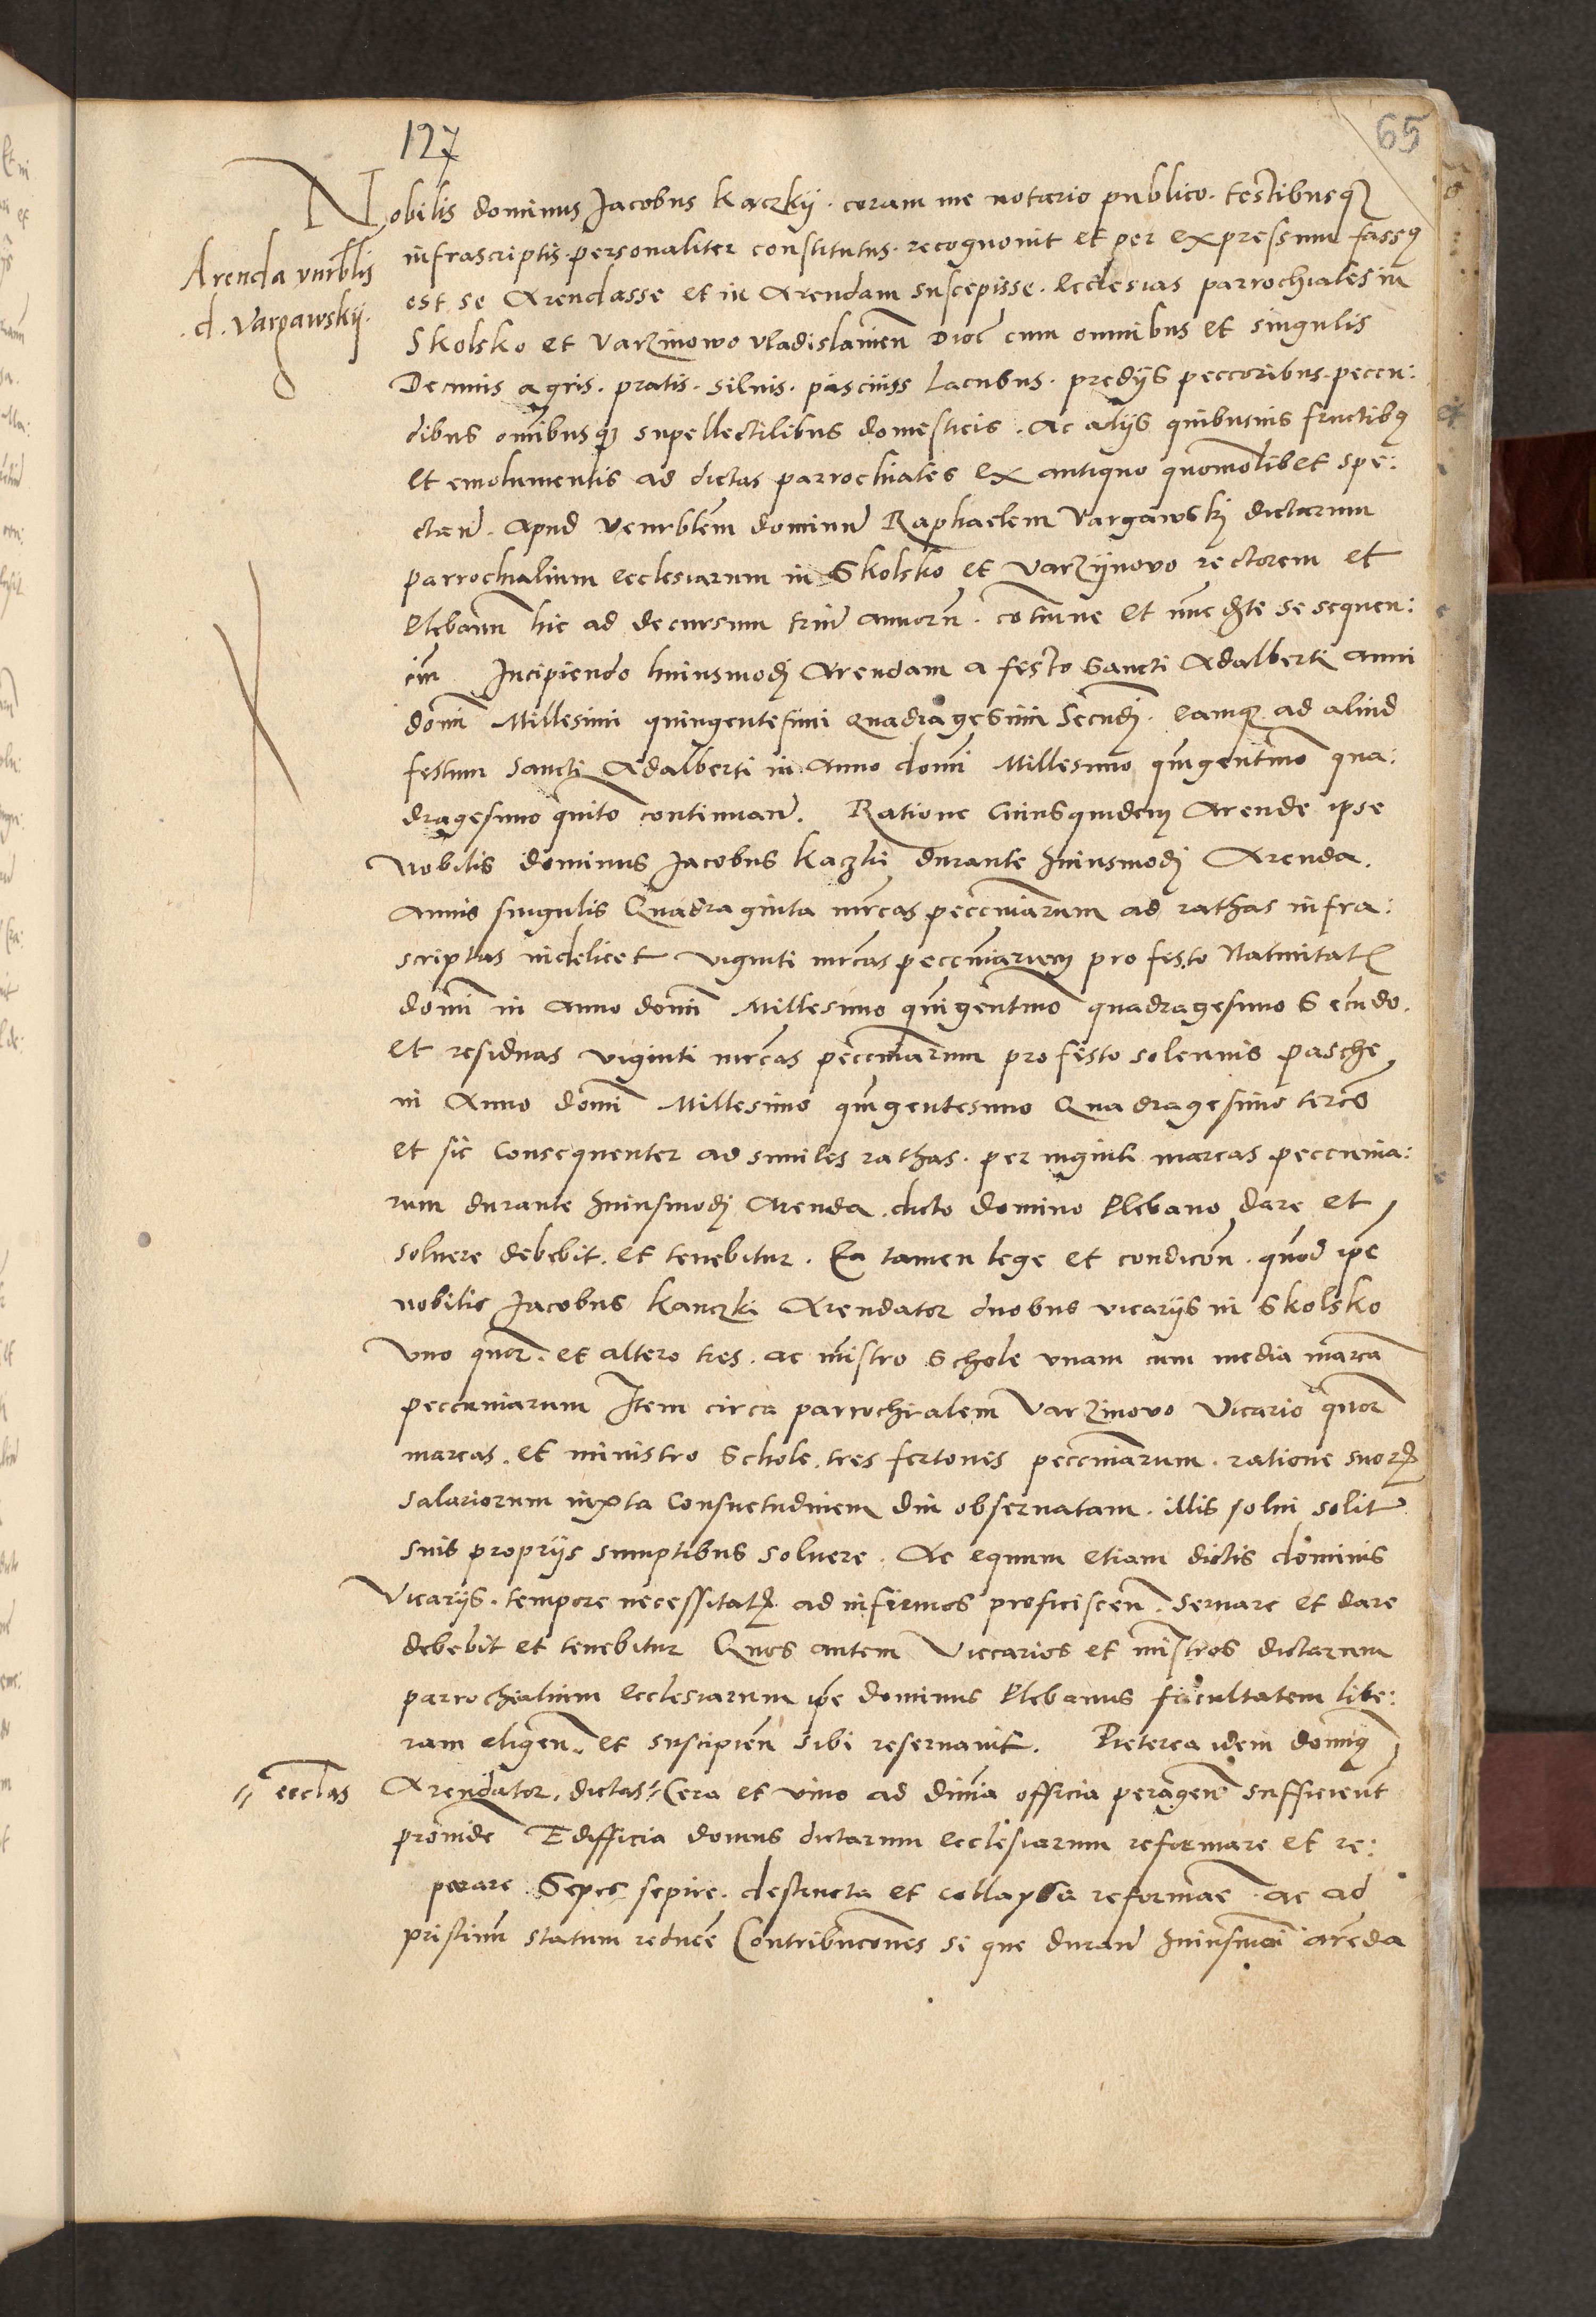 127
65
Nobilis dominus Jacobus Kaczkij . coram me notario publico . testibusq3
infrascriptis . personaliter constitutus . recognouit et per expressum fassus
Arenda vnrblis
. d . Vargawskij .
est se Arendasse et in Arendam suscepisse . ecclesias parrochiales in
Skolsko et Varzinowo vladislauien Dioc cum omnibus et singulis
Decimis agris . pratis . siluis . pascuiss Lacubus . predijs peccoribus . peccu:
dibus omibusq3 supellectilibus domesticis . Ac alijs quibusuis fructibus
et emolumentis ad dictas parrochiales ex antiquo quomolibet spe:
ctan . Apud venrblem dominum Raphaelem Vargawskj dictarum
parrochialium ecclesiarum in Skolsko et Varzijnovo rectorem et
Plebanum hic ad decursum trium annorum . cotinue et mediate se sequen:
cim Incipiendo huiusmodj Arendam a festo Sancti Adalberti anni
domi Millesimi quingentesimi quadragesimi Secundj . eamq3 ad aliud
festum Sancti Adalberti in Anno domi Millesimo quingentimo qua:
dragesimo quito continuan . Ratione Cuiusquidem Arende ipse
Nobilis dominus Jacobus Kaczki durante huiusmodj Arenda .
Annis singulis Quadraginta mrcas peccuniarum ad rathas infra:
scriptas videlicet viginti mrcas peccuniarum pro festo Natiuitatis
domi in Anno domi Millesimo quingentimo quadragesimo Secundo .
et residuas viginti mrcas peccuniarum pro festo solennis Pasche
in Anno domi Millesimo quingentesimo Quadragesimo tercio
et sic Consequenter ad similes rathas . per viginti marcas peccunia:
rum durante huiusmodj Arenda . dicto domino Plebano dare et
soluere debebit . et tenebitur . Ea tamen lege et condicon . quod ipe
nobilis Jacobus Kanczki Arendator duobus vicarijs in Skolsko
Vno quor . et altero tres . ac mistro Schole vnam cum media marca
peccuniarum Item circa parrochialem Varzinovo Vicario quor
marcas . et ministro Schole . tres fertones peccuniarum . ratione suor
salariorum iuxta Consuetudinem diu obseruatam . illis solui solit
suis proprijs sumptibus soluere . Ac equum etiam dictis dominis
Vicarijs . tempore necessitatis ad infirmos proficiscen . seruare et dare
debebit et tenebitur Quos autem Viccarios et mistros dictarum
parrochialium ecclesiarum ipe dominus Plebanus facultatem libe:
ram eligen . et suscipien sibi reseruauit . Preterea idem dominus
" ecclas
Arendator . dictas " Cera et vino ad diuina officia peragen sufficient
prouide Edifficia domus dictarum ecclesiarum reformare et re:
parare Sepes sepire . destructa et collapsa reformae . ac ad
pristinum statum reducere Contribuciones si que duran huiusmoi arenda